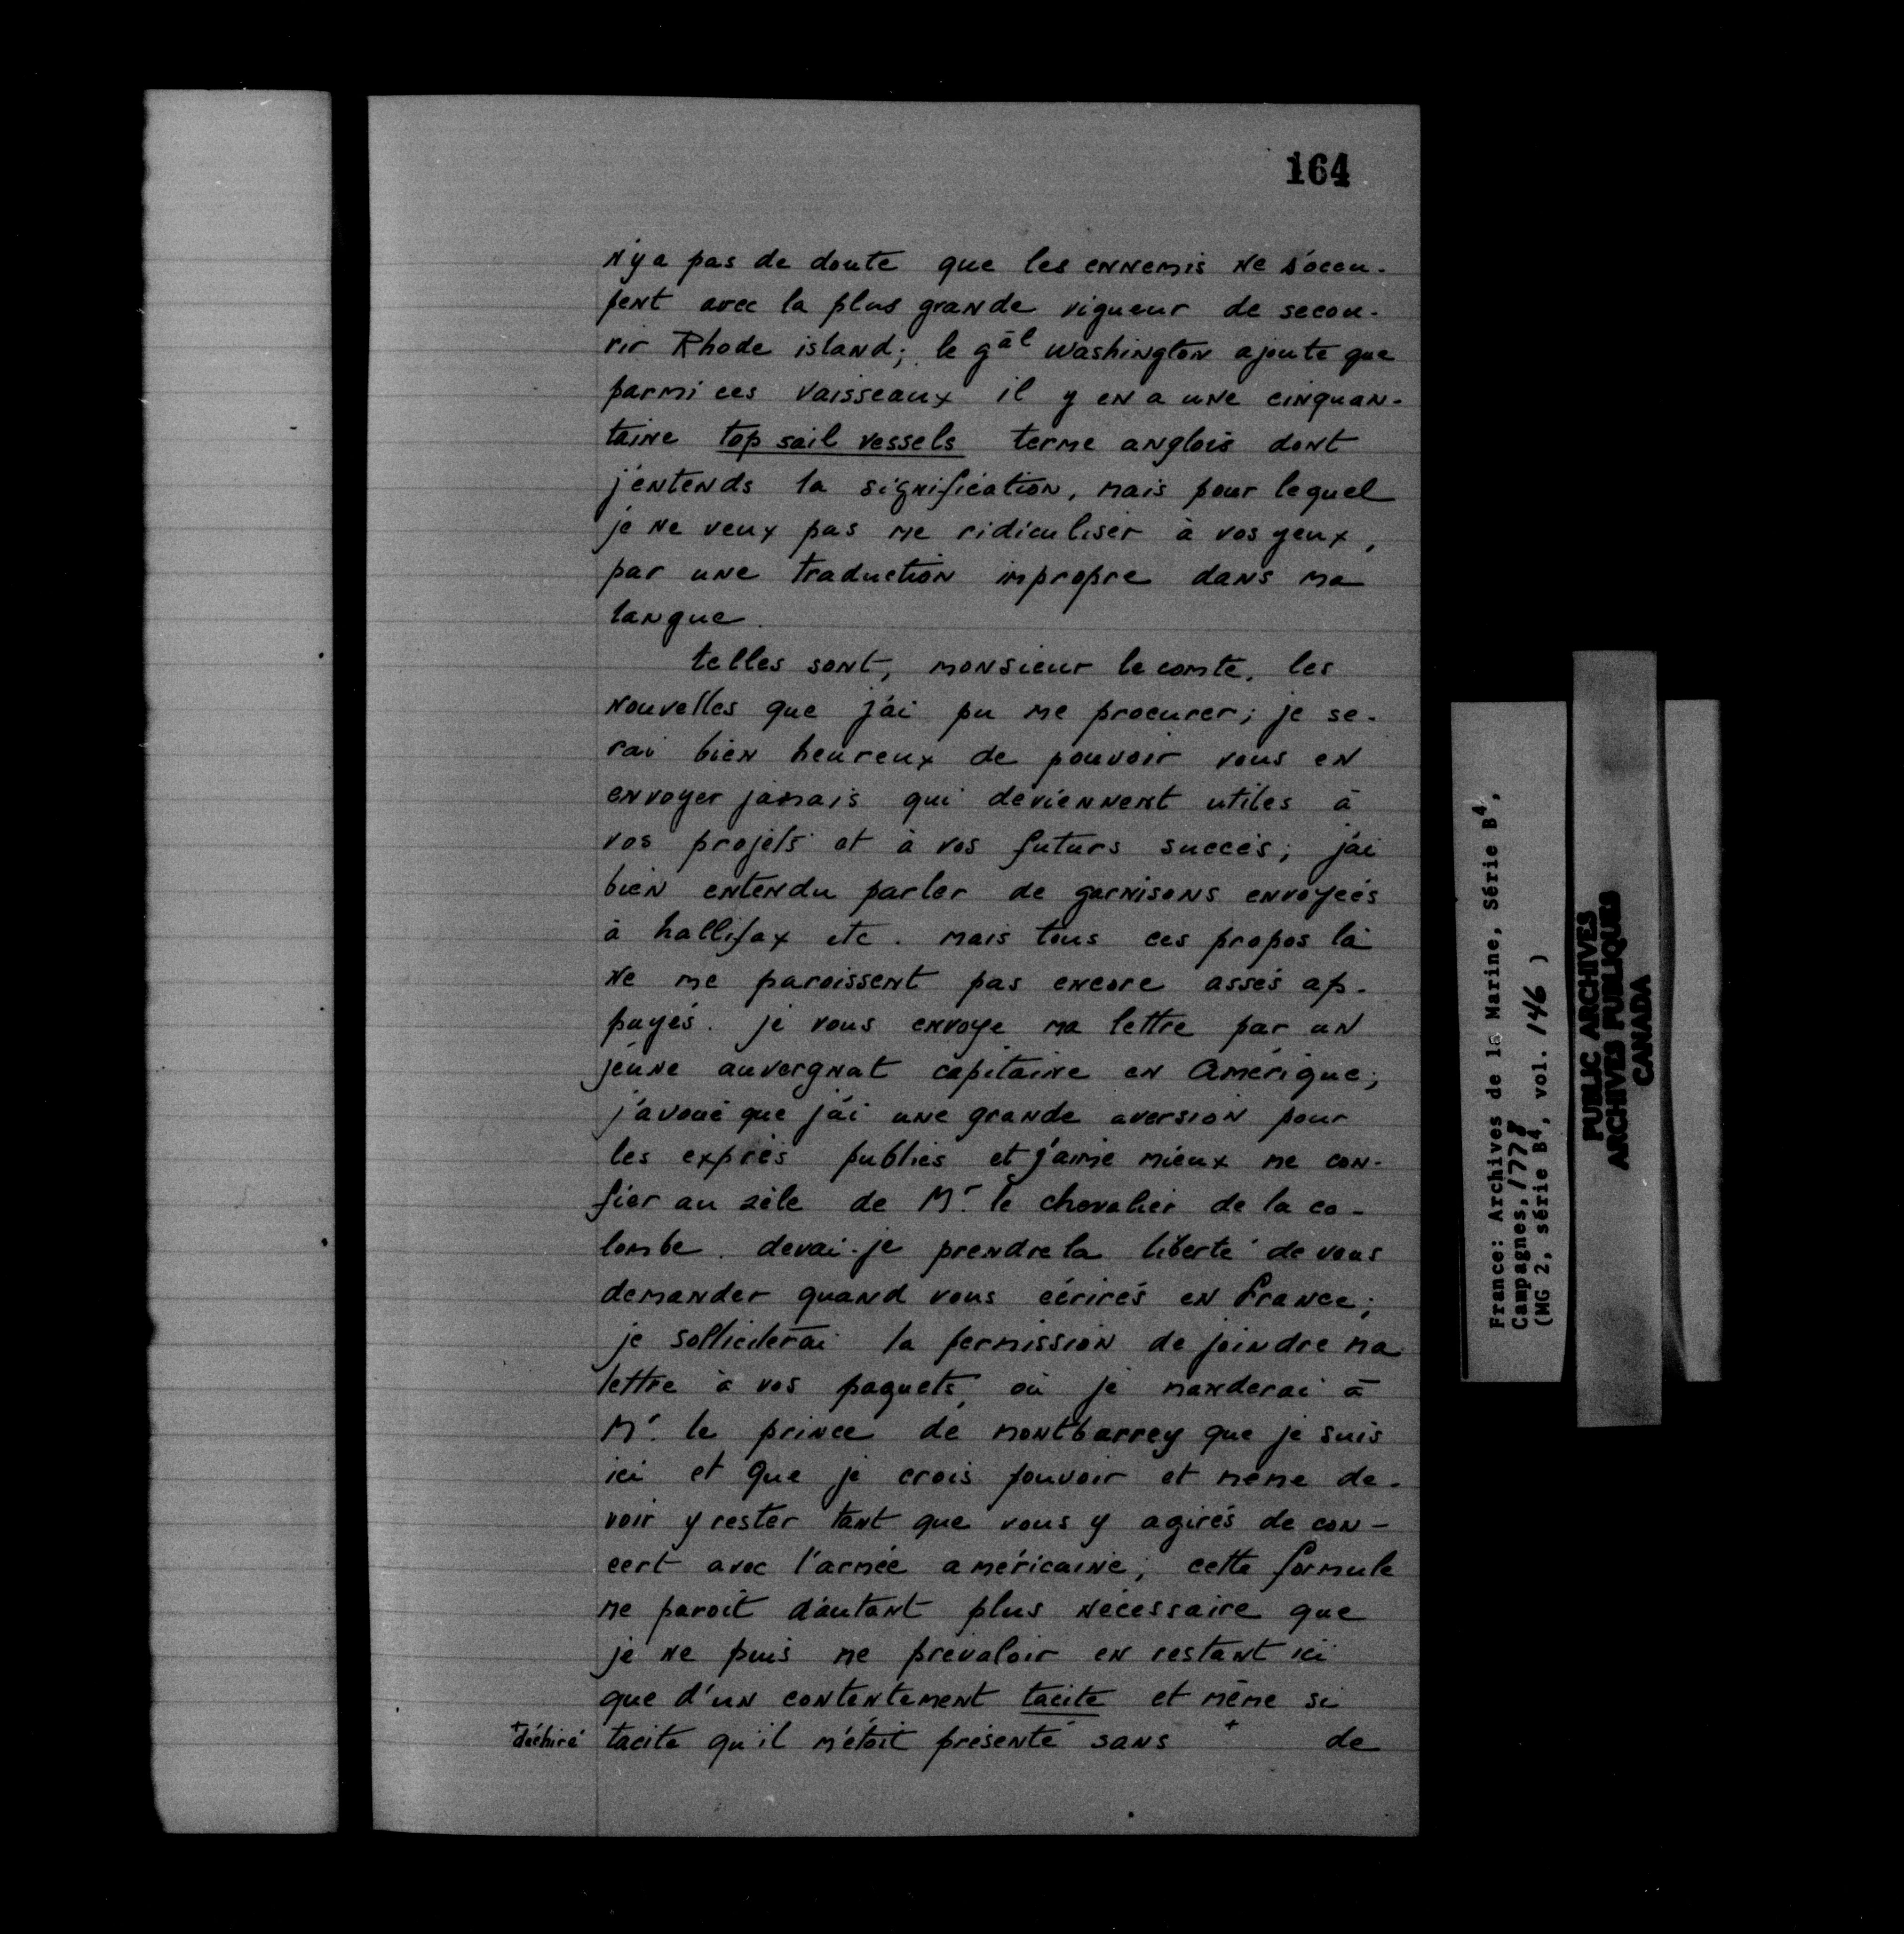 164
n'y a pas de doute que les ennemis ne s'occu-
pent avec la plus grande vigueur de secou-
rir Rhode island; le gāl Washington ajoute que
parmi ces vaisseaux il y en a une cinquan-
taine top sail vessels terme anglois dont
j'entends la signification, mais pour lequel
je ne veux pas me ridiculiser à vos yeux,
par une traduction impropre dans ma
langue.
telles sont, monsieur le comte, les
nouvelles que j'ai pu me procurer; je se-
rai bien heureux de pouvoir vous en
envoyer jamais qui deviennent utiles à
vos projets et à vos futurs succès; j'ai
bien entendu parler de garnisons envoyées
à hallifax etc. mais tous ces propos là
ne me paroissent pas encore assés ap-
puyés. je vous envoye ma lettre par un
jeune auvergnat capitaine en Amérique;
j'avoue que j'ai une grande aversion pour
les exprès publics et j'aime mieux me con-
fier au zèle de Mr. le chevalier de la co-
lombe. devai-je prendre la liberté de vous
demander quand vous écrirés en france;
je solliciterai la permission de joindre ma
lettre à vos paquets, où je manderai à
Mr. le prince de montbarrey que je suis
ici et que je crois pouvoir et même de-
voir y rester tant que vous y agirés de con-
cert avec l'armée américaine; cette formule
me paroît d'autant plus nécessaire que
je ne puis me prévaloir en restant ici
que d'un contentement tacite et même si
+déchiré tacite qu'il m'étoit présenté sans + de
France: Archives de la Marine, Série B4,
Campagnes, 1778
(MG 2, série B4, vol. 146 )
PUBLIC ARCHIVES
ARCHIVES PUBLIQUES
CANADA